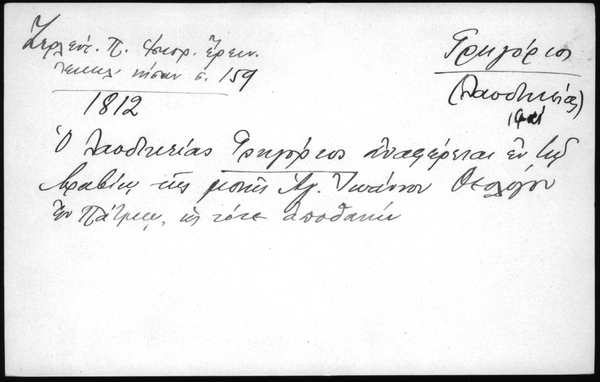 Ζερλέντ. Π. Ἱστορ. Ἔρευν.
ἐκκλ. νήσων σ. 159
Γρηγόριος
(Λαοδικείας)
1812
Ὁ Λαοδικείας Γρηγόριος ἀναφέρεται ἐν τῷ
τῆς μονῆς Ἁγ. Ἰωάννου Θεολόγου
ἐν Πάτμῳ, ὡς τότε ἀποθανών